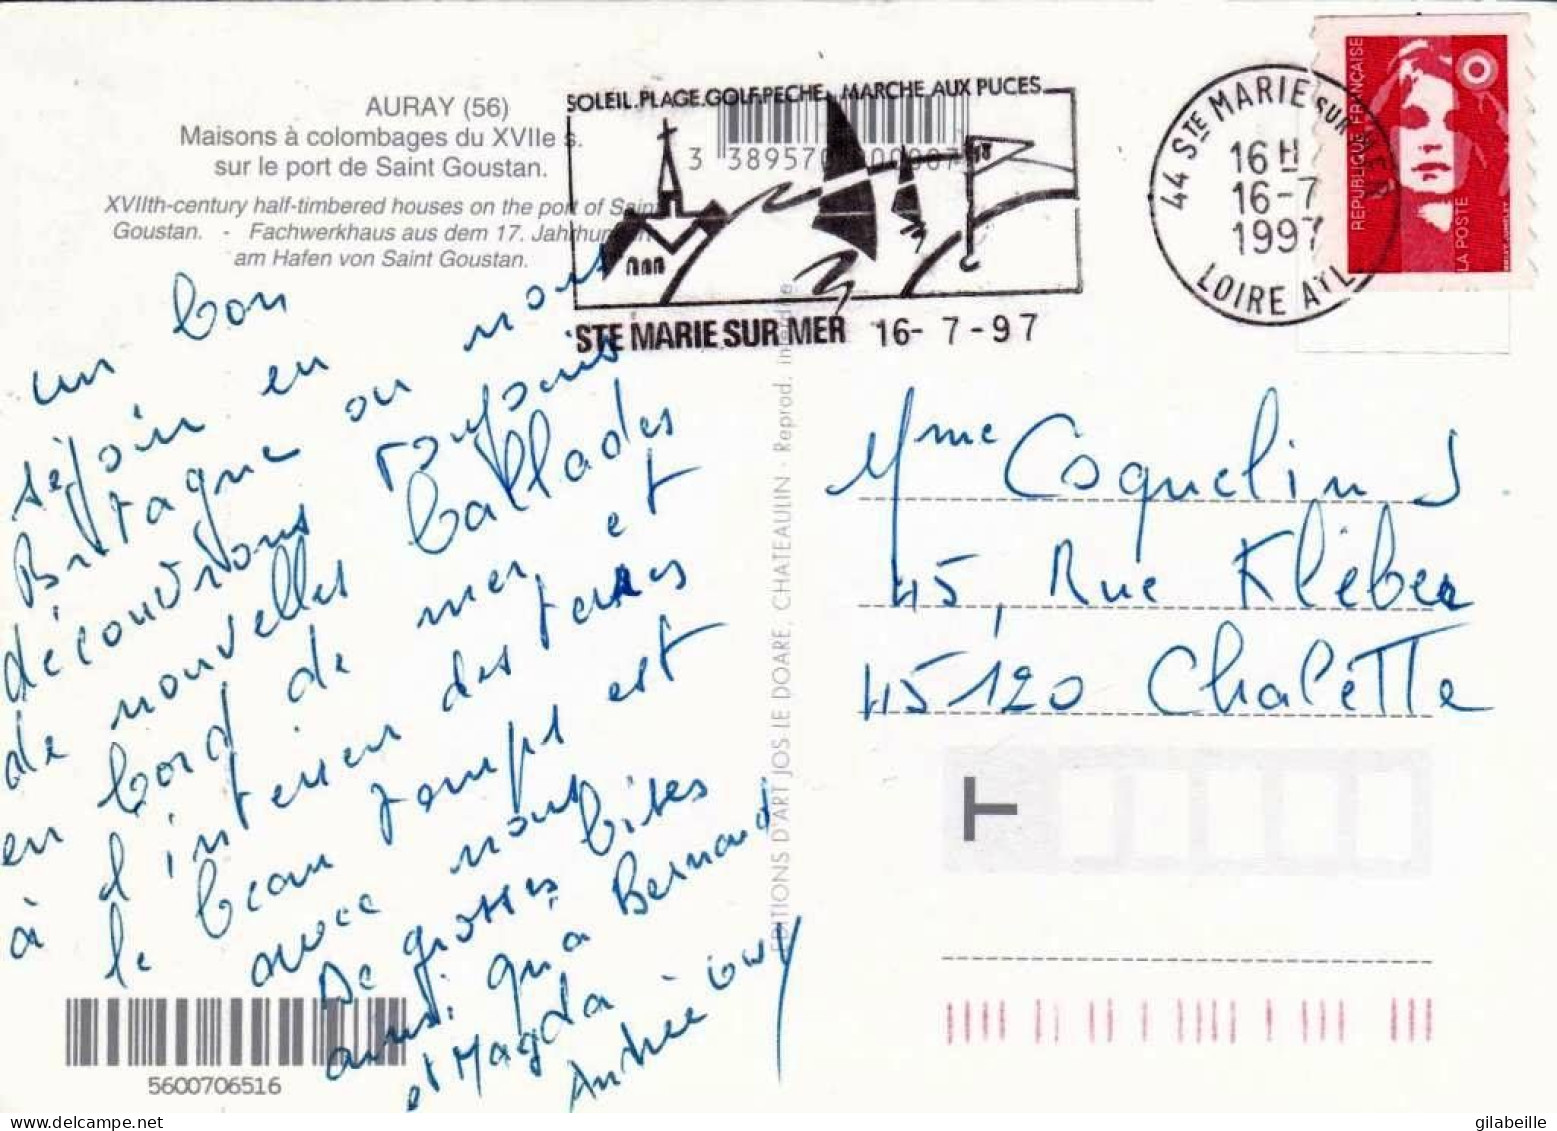 AURAY (56)
Maisons à colombages du XVIIe s.
sur le port de Saint Goustan.
XVIIth-century half-timbered houses on the port of Saint
Goustan. - Fachwerkhaus aus dem 17. Jahrhundert
am Hafen von Saint Goustan.
SOLEIL.PLAGE.GOLF.PECHE. MARCHE AUX PUCES
STE MARIE SUR MER 16- 7 - 97
44 STE MARIE SUR MER
16 H
16-7
1997
LOIRE ATL
REPUBLIQUE FRANÇAISE
LA POSTE
un bon
séjour en
Bretagne ou nous
découvrons toujours
de nouvelles ballades
en bord de mer et
à l'interieur des terres
le beau temps est
avec nous
De grosses bises
ainsi qu'a Bernard
et Magda
Andrée Guy
Mme Coquelin J
45, Rue Kléber
45120 Chalette
T
EDITIONS D'ART JOS LE DOARE, CHATEAULIN - Reprod. interdite
5600706516
gilabeille